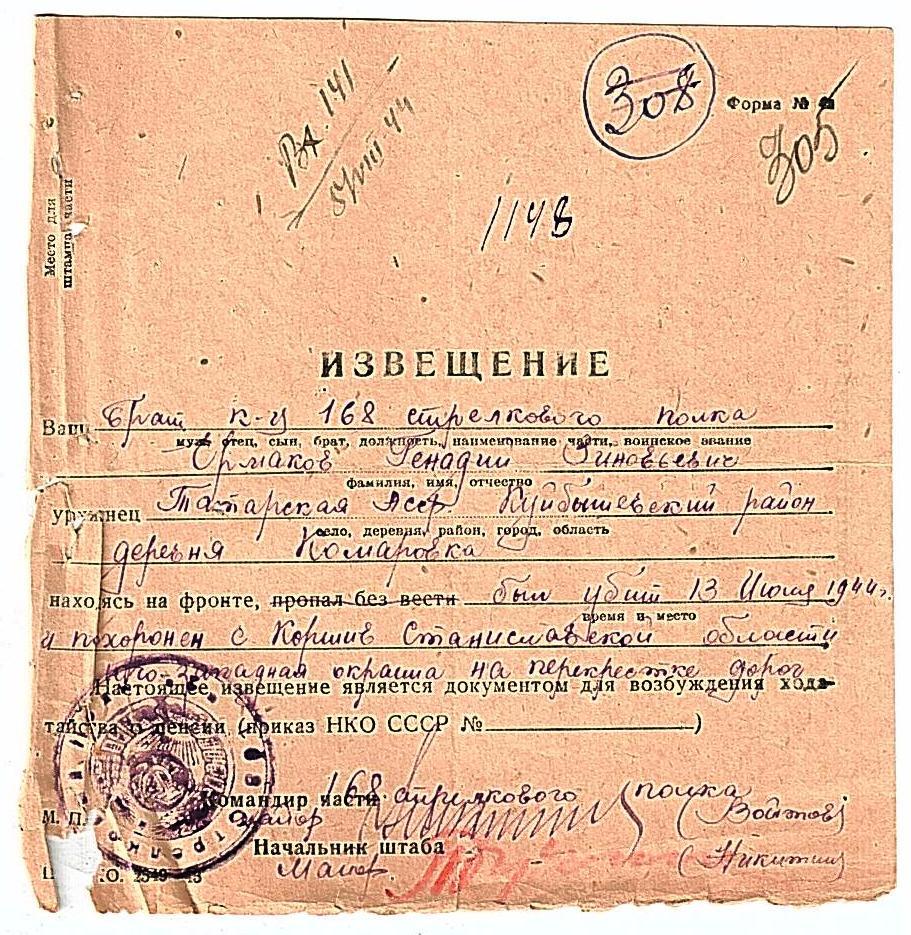 308
Форма №
305
ВА. 141
5/VIII 44
1148
Место для
штампа части
ИЗВЕЩЕНИЕ
Ваш брат к-ц 168 стрелкового полка
муж отец, сын, брат, должность, наименование части, воинское звание
Ермаков Генадии Зиновьевич
фамилия, имя, отчество
уроженец Татарская Асср. Куйбышевский район
село, деревня, район, город, область
деревня Комаровка
находясь на фронте, пропал без вести был убит 13 Июля 1944 г.
время и место
и похоронен с. Коршив Станиславской области
юго-западная окраина на перекрестке дорог
Настоящее извещение является документом для возбуждения хода-
тайства о пенсии (приказ НКО СССР № )
168 стрелкового полка
Командир части
майор (Войтов)
М. П.
Начальник штаба
Майор. (Никитин)